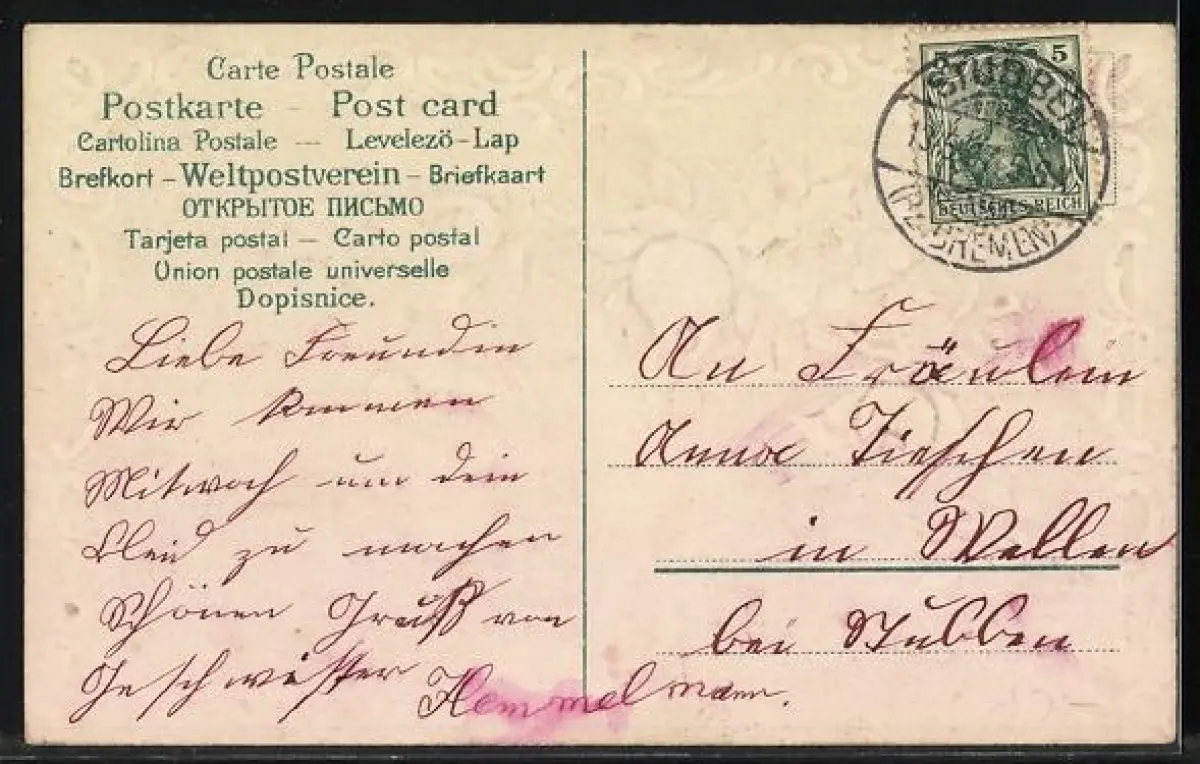 Carte Postale
Postkarte – Post card
Cartolina Postale — Levelezö-Lap
Brefkort – Weltpostverein – Briefkaart
ОТКРЫТОЕ ПИСЬМО
Tarjeta postal — Carto postal
Union postale universelle
Dopisnice.
Liebe Freundin
Wir kommen
Mitwoch um dein
Kleid zu machen
Schönen Gruß von
Geschwister Hemmelmann.
5
STUBBEN
(BZ. BREMEN)
DEUTSCHES REICH
An Fräulein
Anna Tieschen
in Wellen
bei Stubben